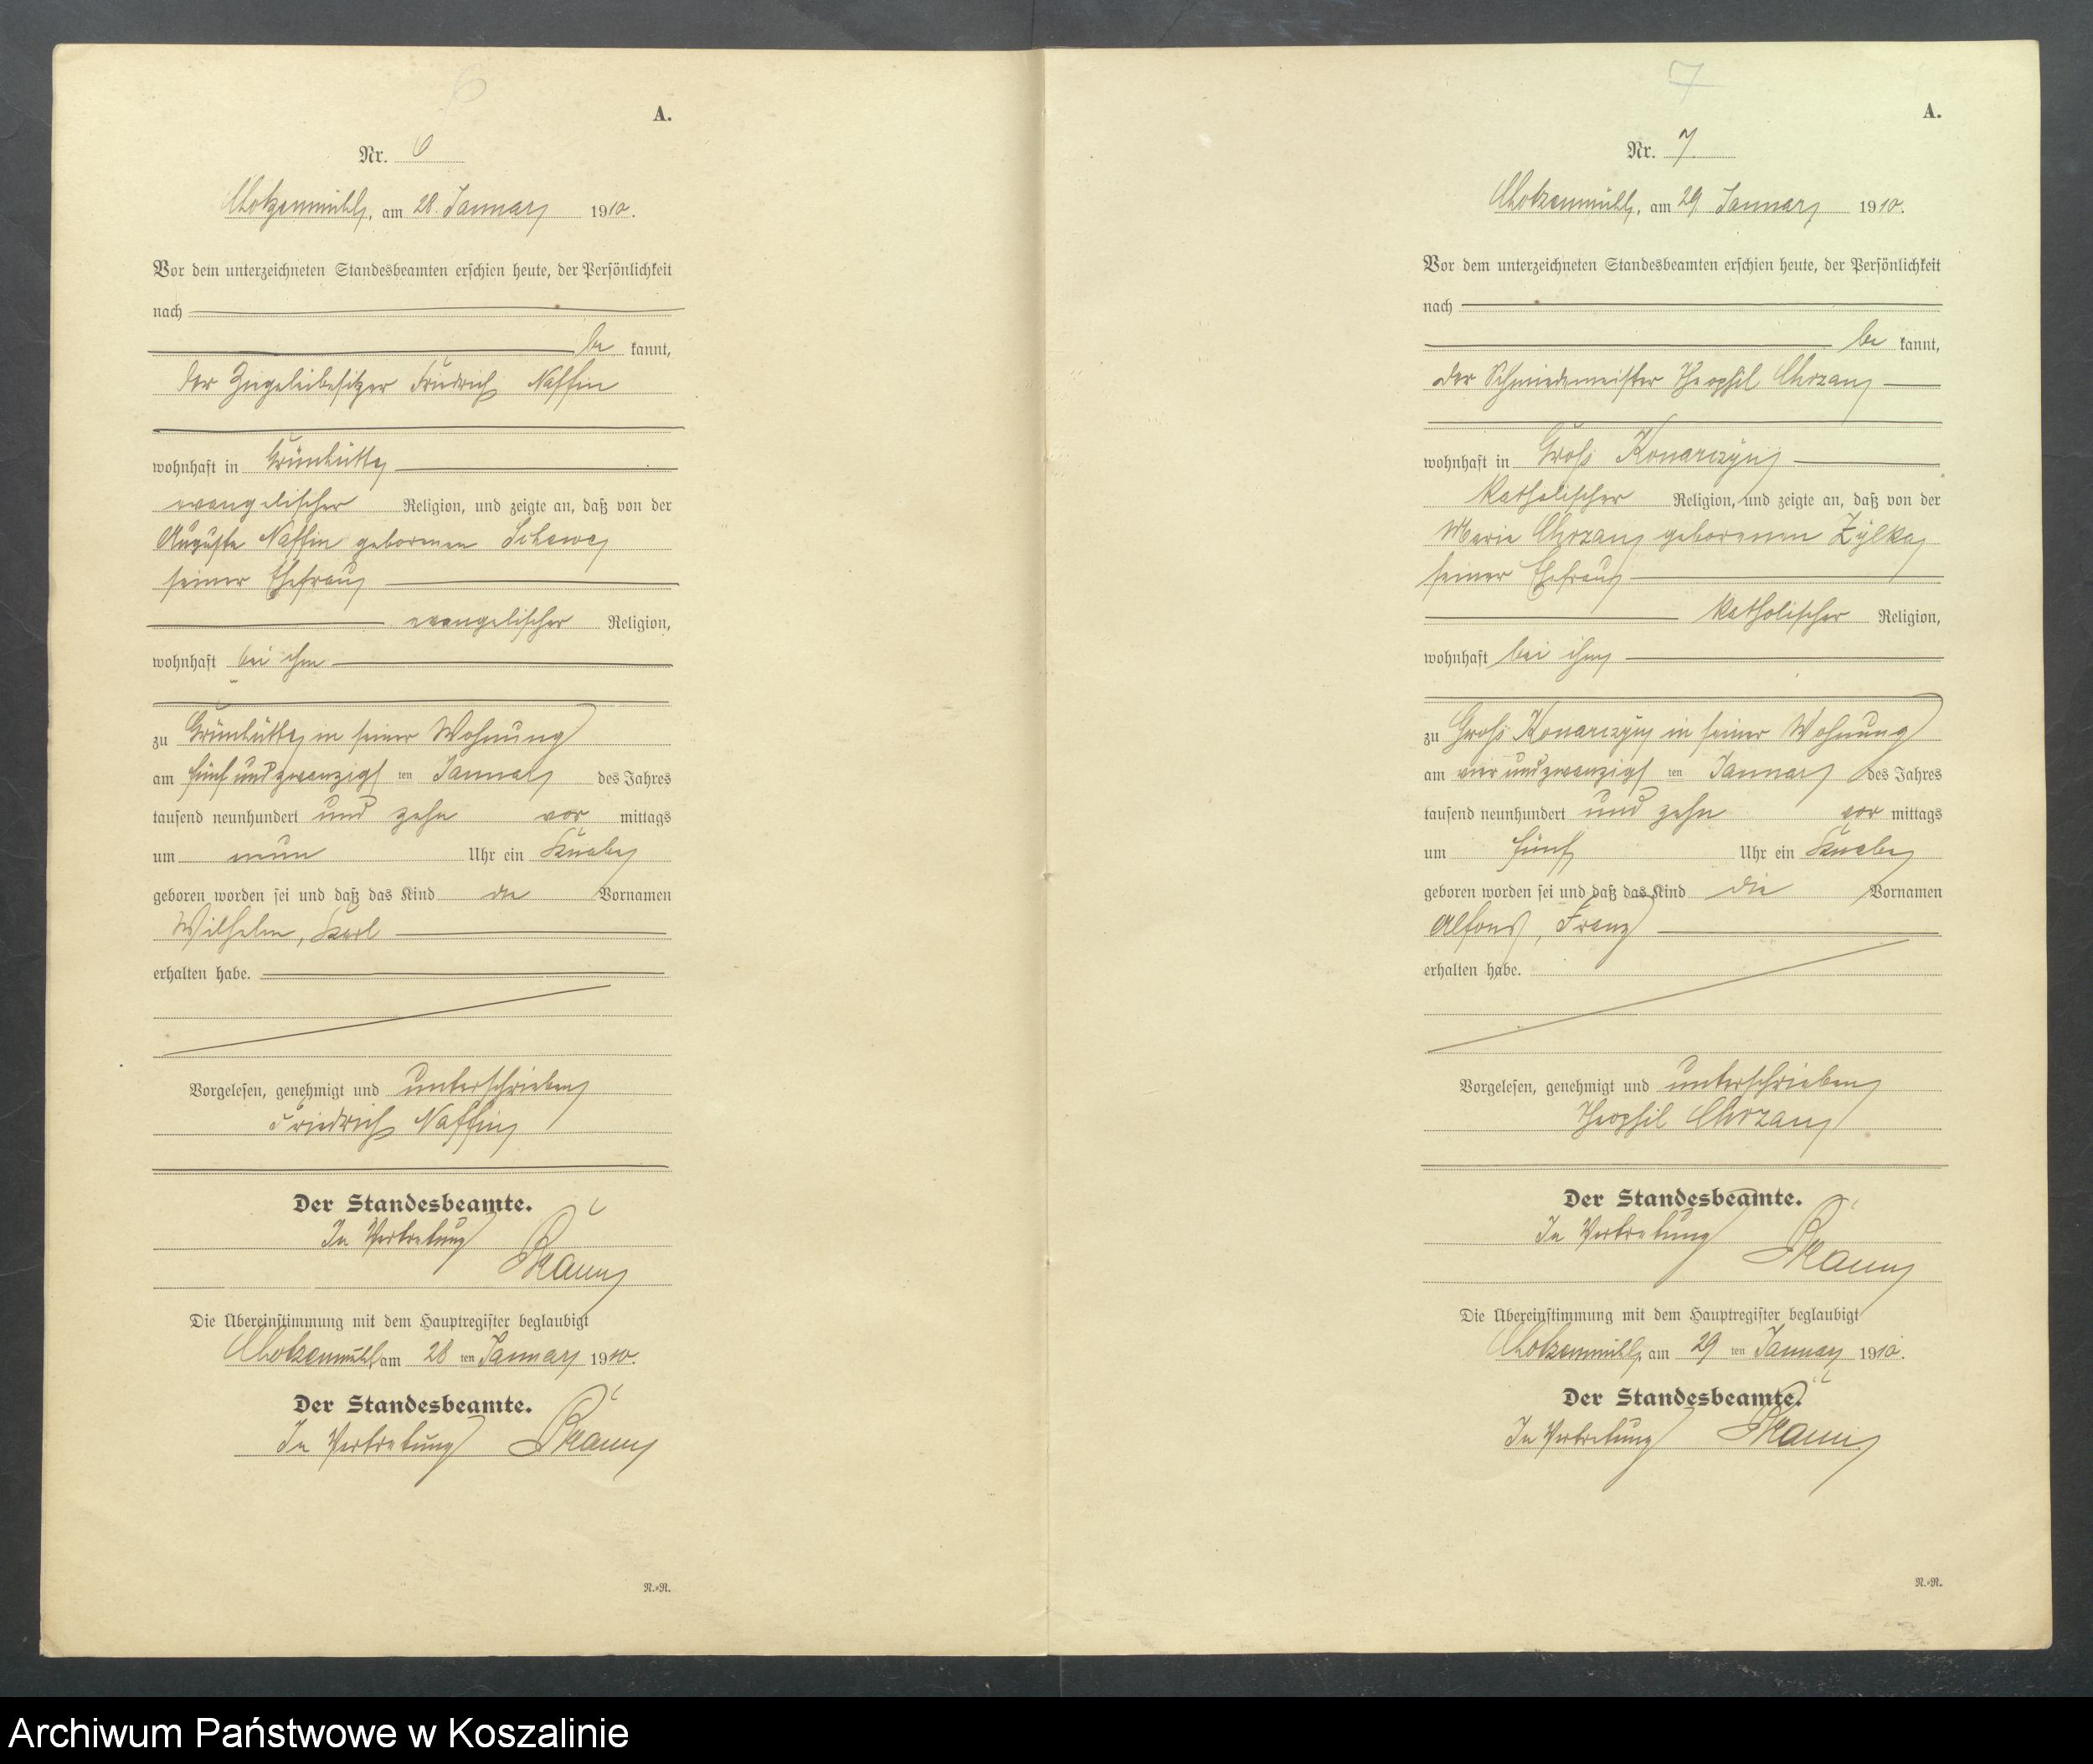 6
A.
Nr. 6
Chotzenmühl, am 28. Januar 1910.
Vor dem unterzeichneten Standesbeamten erschien heute, der Persönlichkeit
nach
be kannt,
der Ziegeleibesitzer Friedrich Naffin
wohnhaft in Grünhütte
evangelischer Religion, und zeigte an, daß von der
Auguste Naffin geborenen Schewe
seiner Ehefrau
evangelischer Religion,
wohnhaft bei ihm
zu Grünhütte in seiner Wohnung
am fünfundzwanzigs ten Januar des Jahres
tausend neunhundert und zehn vor mittags
um neun Uhr ein Knabe
geboren worden sei und daß das Kind die Vornamen
Wilhelm, Karl
erhalten habe.
Vorgelesen, genehmigt und unterschrieben
Friedrich Naffin
Der Standesbeamte.
In Vertretung
Die Übereinstimmung mit dem Hauptregister beglaubigt
Chotzenmühl am 28 ten Januar 1910.
Der Standesbeamte.
In Vertretung
R.=R.
7
A.
Nr. 7.
Chotzenmühl, am 29. Januar 1910.
Vor dem unterzeichneten Standesbeamten erschien heute, der Persönlichkeit
nach
be kannt,
der Schmiedemeister Theophil Chrzan
wohnhaft in Groß Konarczyn
katholischer Religion, und zeigte an, daß von der
Marie Chrzan geborenen Zylka
seiner Ehefrau
katholischer Religion,
wohnhaft bei ihm
zu Groß Konarczyn in seiner Wohnung
am vierundzwanzigs ten Januar des Jahres
tausend neunhundert und zehn vor mittags
um fünf Uhr ein Knabe
geboren worden sei und daß das Kind die Vornamen
Alfons, Franz
erhalten habe.
Vorgelesen, genehmigt und unterschrieben
Theophil Chrzan
Der Standesbeamte.
In Vertretung
Die Übereinstimmung mit dem Hauptregister beglaubigt
Chotzenmühl, am 29 ten Januar 1910.
Der Standesbeamte.
In Vertretung
R.=R.
Archiwum Państwowe w Koszalinie